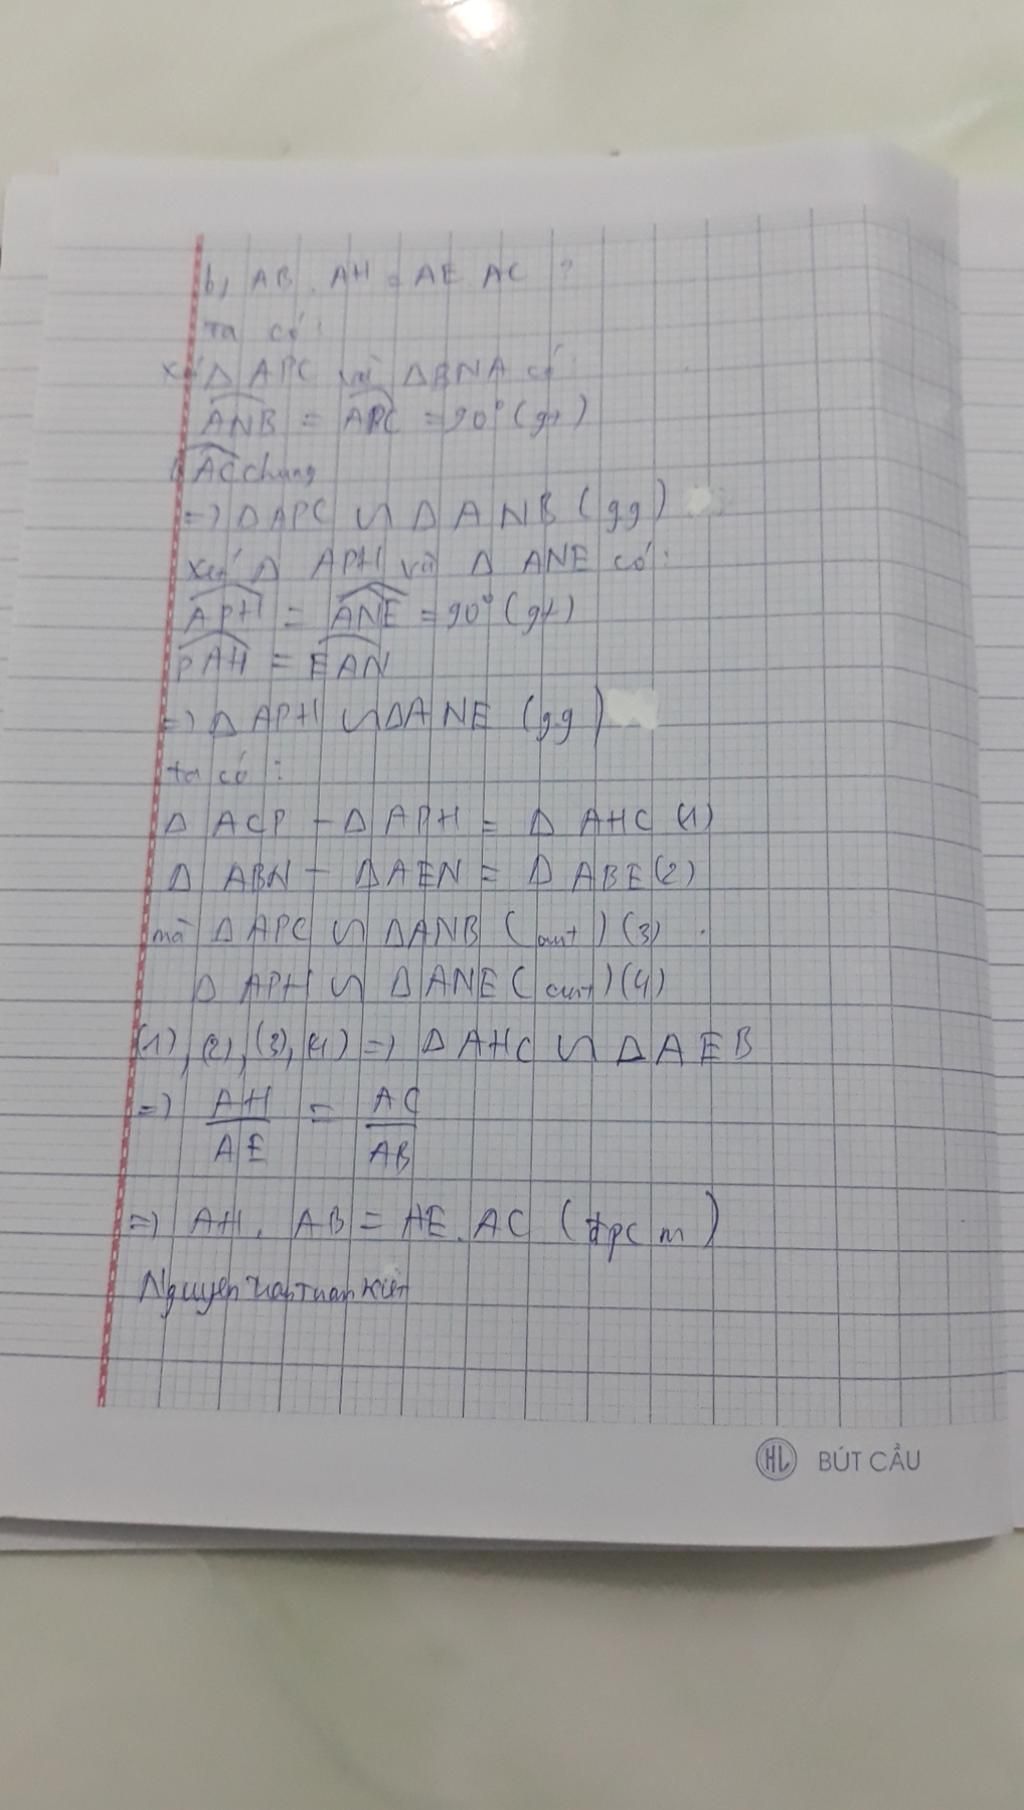 b, AB . AH = AE . AC ?
Ta có:
xét Δ APC và ΔBNA có:
ANB = APC = 90° (gt)
BAC chung
=> Δ APC ∽ Δ ANB (gg)
xét Δ APH và Δ ANE có:
APH = ANE = 90° (gt)
PAH = EAN
=> Δ APH ∽ ΔANE (gg)
ta có:
Δ ACP - Δ APH = Δ AHC (1)
Δ ABN - ΔAEN = Δ ABE (2)
mà Δ APC ∽ ΔANB (cmt) (3)
Δ APH ∽ ΔANE (cmt) (4)
(1), (2), (3), (4) => Δ AHC ∽ Δ AEB
=> AH/AE = AC/AB
=> AH . AB = AE . AC (đpcm)
Nguyen Tuan Kiet
HL BÚT CẨU